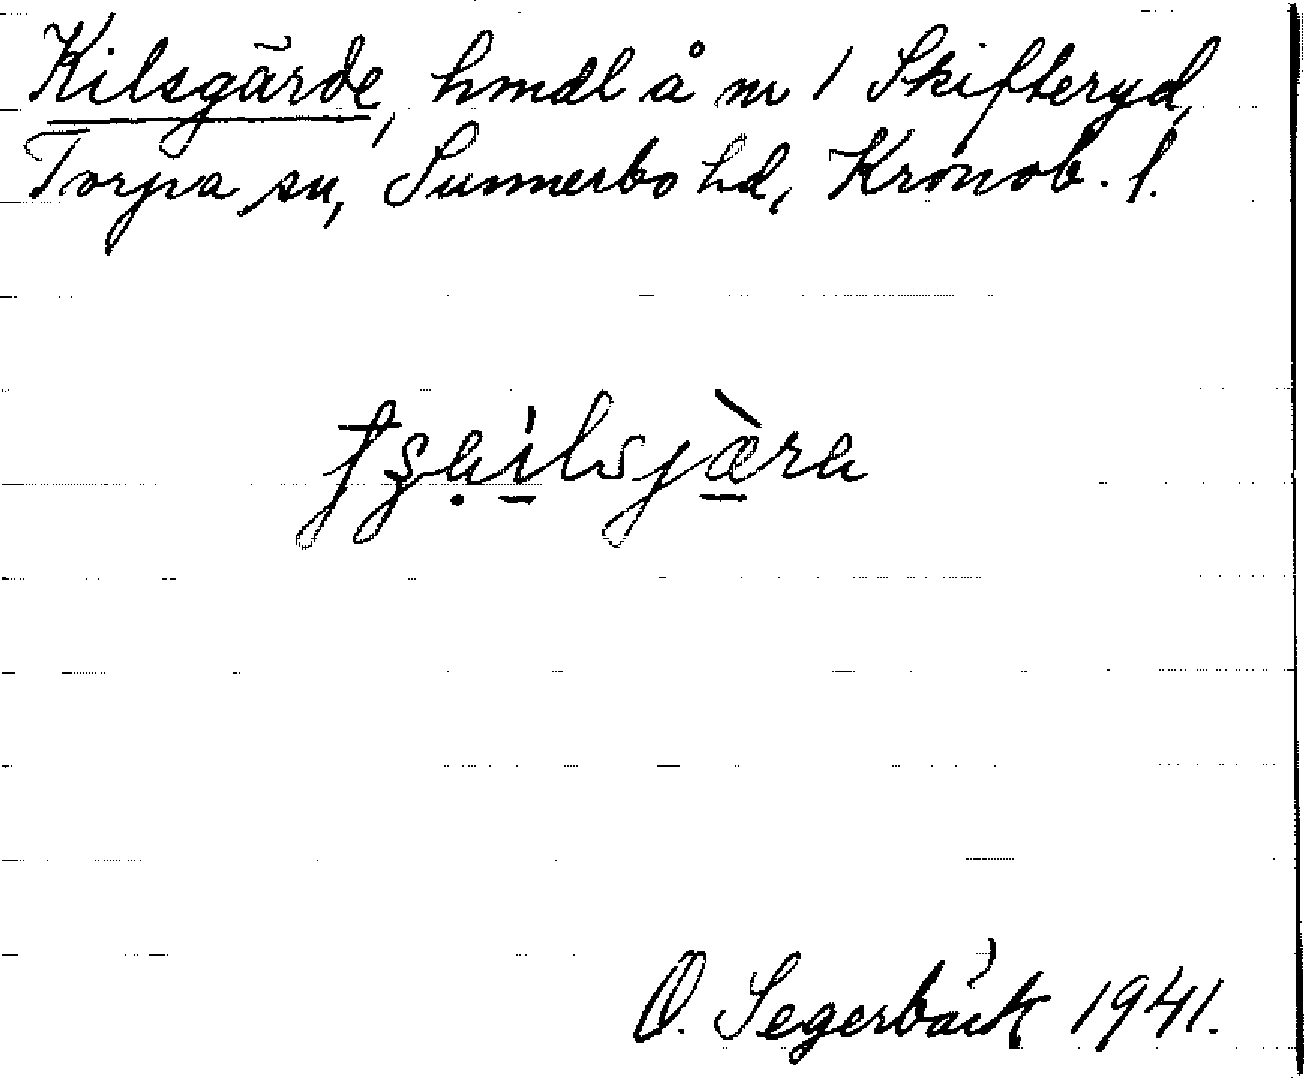 Kilsgärde, hmdl å nr 1 Skifteryd,
Torpa sn, Sunnerbo hd, Kronob. l.
O. Segerbäck 1941.